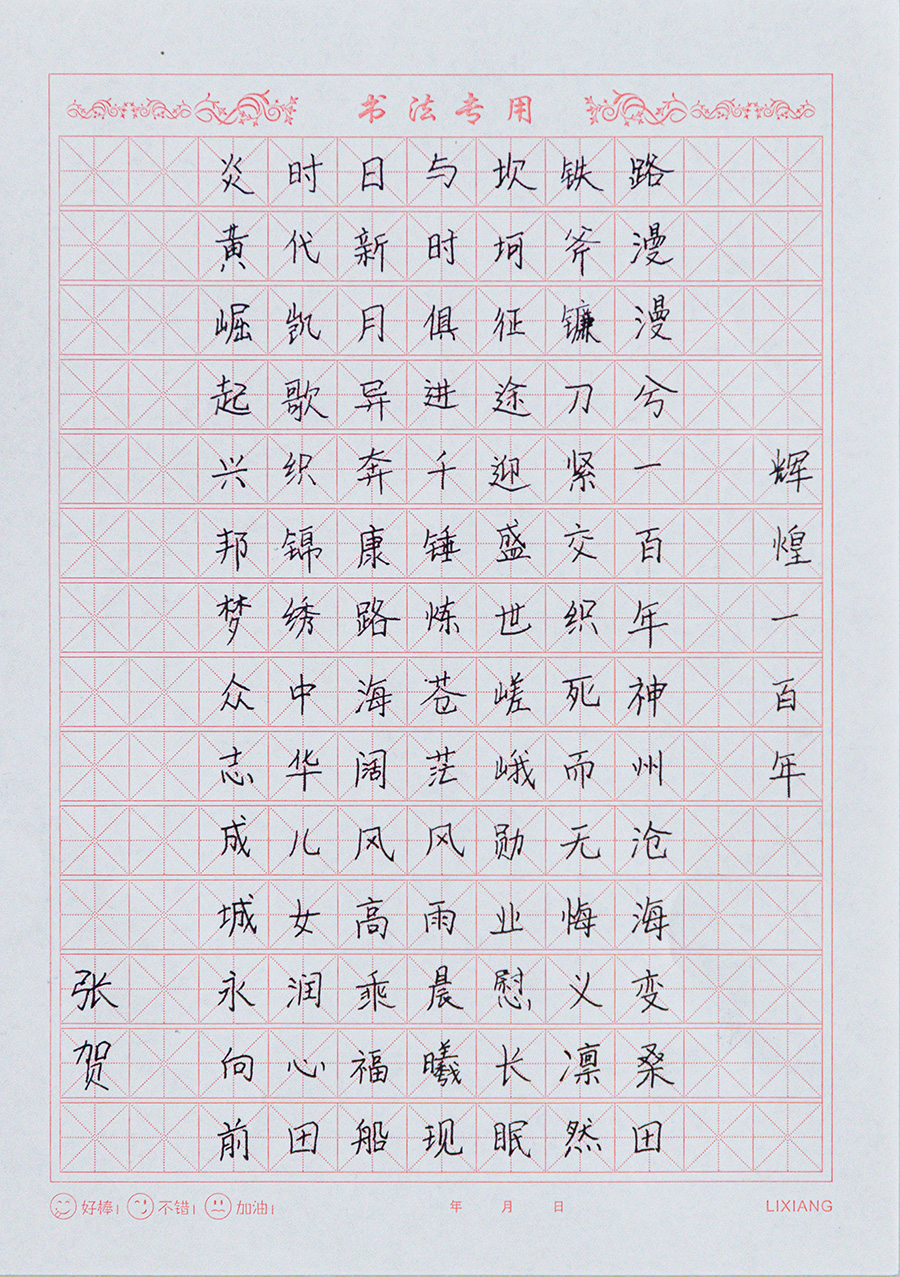 书法专用
辉煌一百年
路漫漫兮一百年神州沧海变桑田
铁斧镰刀紧交织死而无悔义凛然
坎坷征途迎盛世嵯峨勋业慰长眠
与时俱进千锤炼苍茫风雨晨曦现
日新月异奔康路海阔风高乘福船
时代凯歌织锦绣中华儿女润心田
炎黄崛起兴邦梦众志成城永向前
张贺
好棒! 不错! 加油! 年 月 日 LIXIANG